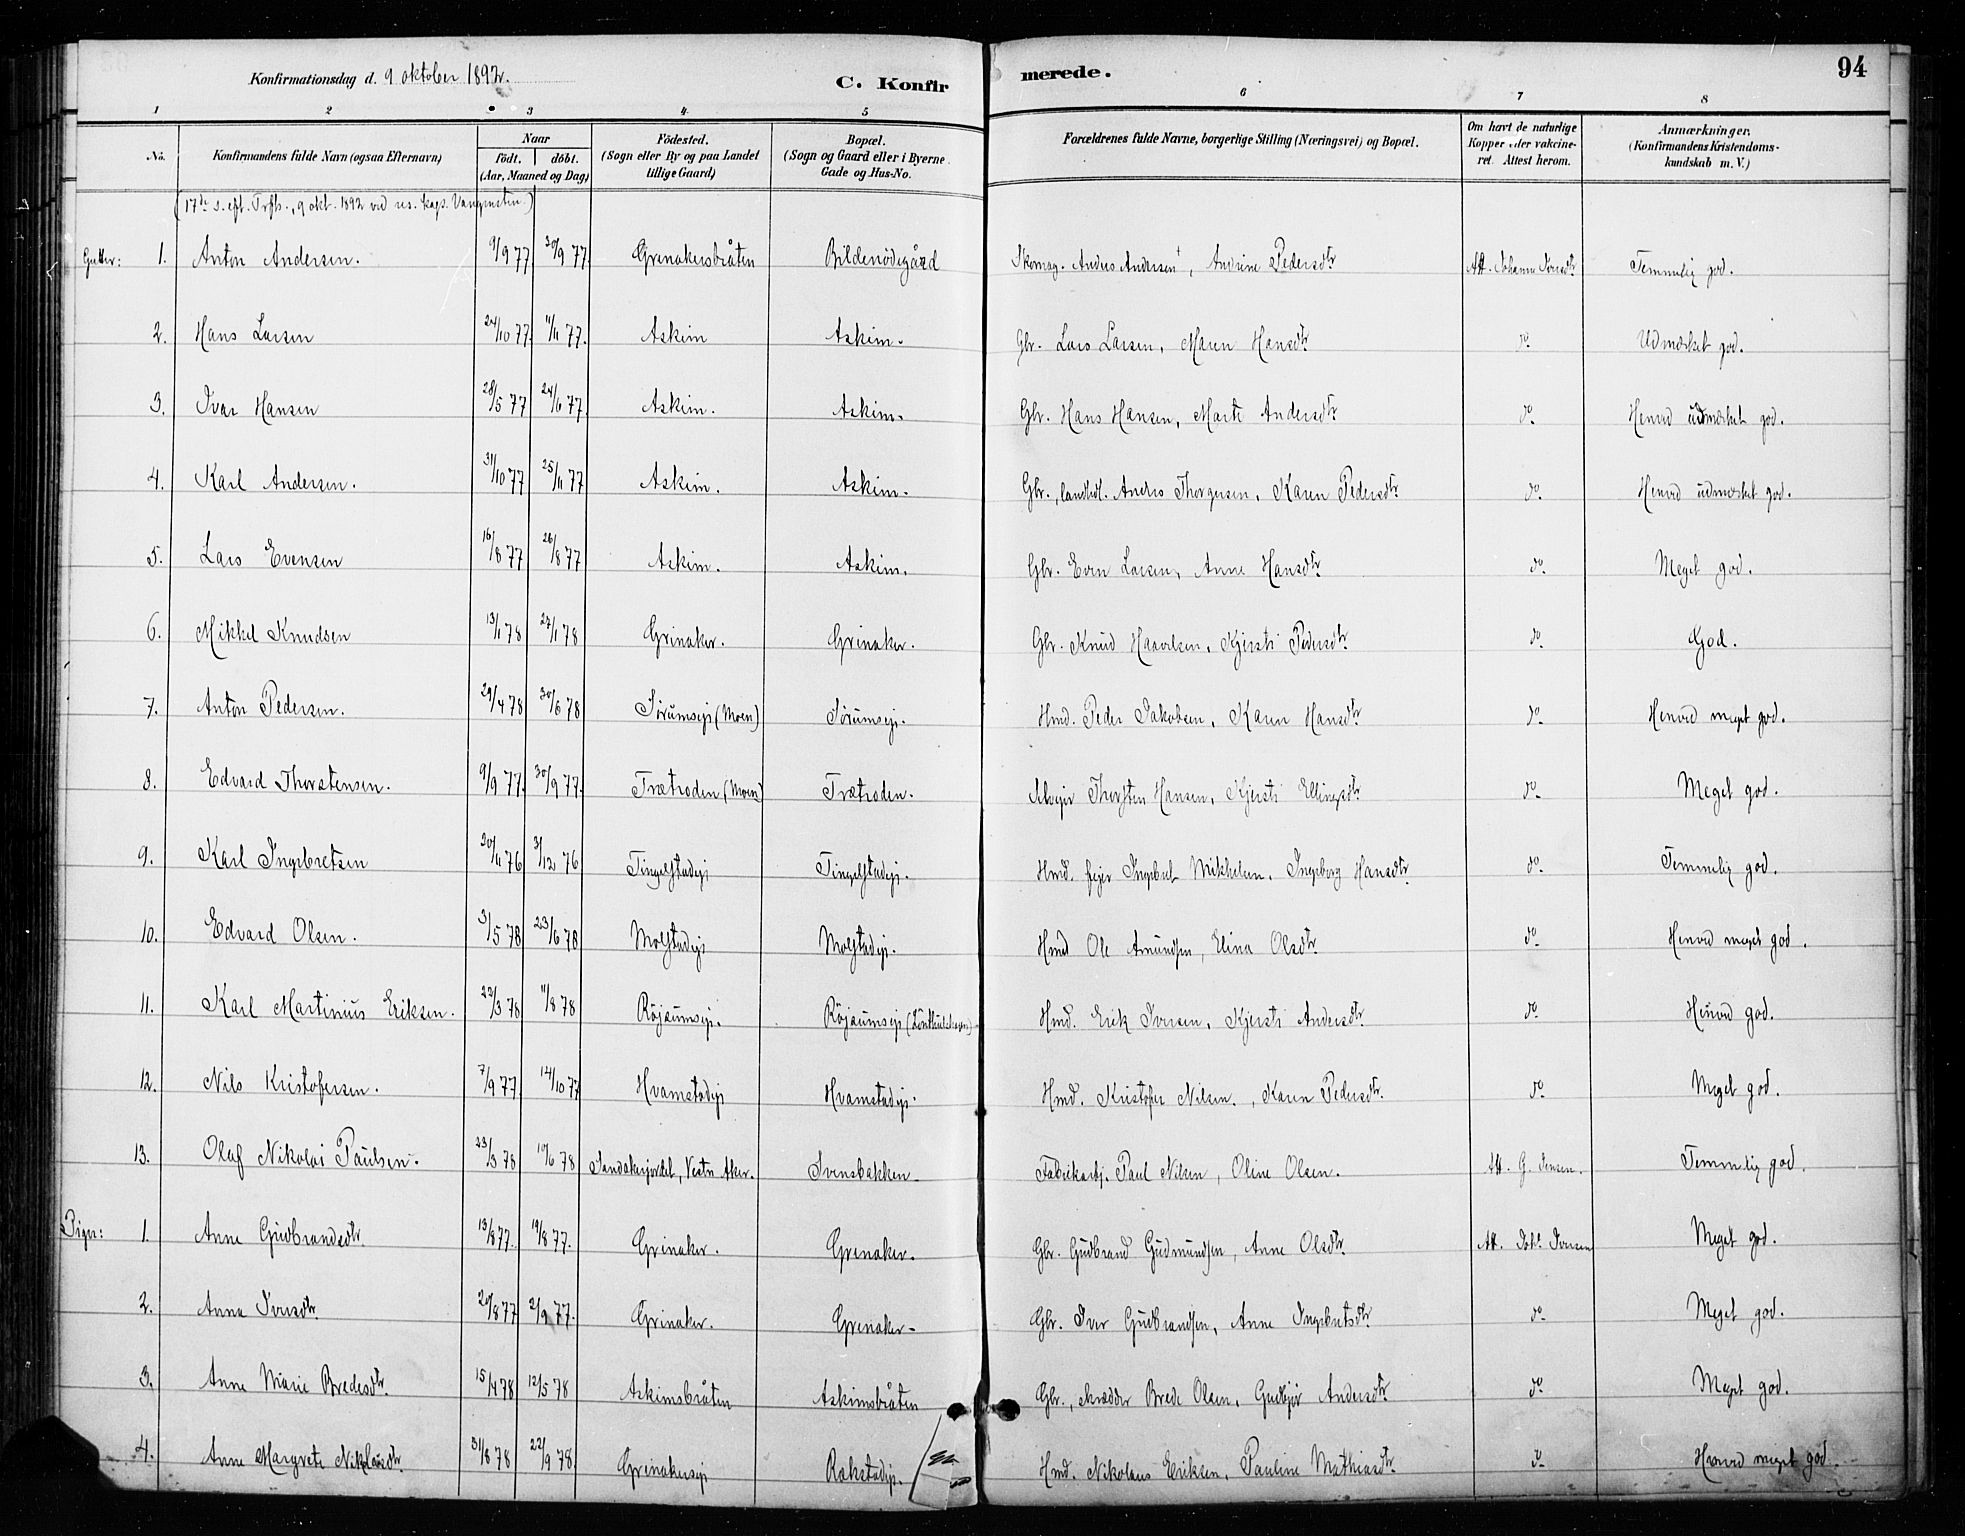 Konfirmationsdag d. 9 oktober 1892. C. Konfirmerede. 94
1 2 3 4 5 6 7 8
No. Konfirmandens fulde Navn (ogsaa Efternavn) Naar födt. döbt. (Aar, Maaned og Dag) Födested. (Sogn eller By og paa Landet tillige Gaard) Bopæl. (Sogn og Gaard eller i Byerne Gade og Hus-No. Forældrenes fulde Navne, borgerlige Stilling (Næringsvei) og Bopæl. Om havt de naturlige Kopper eller vakcineret. Attest herom. Anmærkninger. (Konfirmandens Kristendomskundskab m. V.)
(17de s. eft. Trfh., 9 okt. 1892 ved res. kap. Vangensten.)
Gutter: 1. Anton Andersen. 9/9 77 30/9 77. Grinakersbråten Bildenödegård Skomag. Anders Andersen†, Andrine Pedersdtr Att. Johanne Iversdtr Temmelig god.
2. Hans Larsen 24/10 77. 11/11 77. Askim Askim. Gbr. Lars Larsen, Maren Hansdtr do Udmærket god.
3. Ivar Hansen 28/5 77 24/6 77. Askim. Askim. Gbr. Hans Hansen, Marte Andersdtr do Henved udmærket god.
4. Karl Andersen. 31/10 77 25/11 77 Askim. Askim. Gbr., landhdl. Anders Thorgersen, Karen Pedersdtr do Henved udmærket god.
5. Lars Evensen 16/8 77 26/8 77 Askim. Askim. Gbr. Even Larsen, Anne Hansdtr do. Meget god.
6. Mikkel Knudsen 13/1 78 27/1 78 Grinaker. Grinaker. Gbr. Knud Haavelsen, Kjersti Pedersdtr do God.
7. Anton Pedersen. 29/4 78 30/6 78 Sörumseje (Moen) Sörumseje. Hmd. Peder Jakobsen, Karen Hansdtr do Henved meget god.
8. Edvard Thorstensen. 9/9 77. 30/9 77. Trætroden (Moen) Trætroden. Selvejer Thorsten Hansen, Kjersti Ellingsdtr do Meget god.
9. Karl Ingebretsen 20/11 76 3/12 76 Tingelstadeje Tingelstadeje. Hmd. Ingebret Mikkelsen, Ingeborg Hansdtr do Temmelig god.
10. Edvard Olsen. 3/5 78 23/6 78 Molstadeje Molstadeje. Hmd Ole Amundsen, Elina Olsdtr do Henved meget god.
11. Karl Martinius Eriksen. 22/3 78 11/8 78 Röjsumseje. Röjsumseje Hmd. Erik Iversen, Kjersti Andersdtr do Henved god.
12. Nils Kristofersen. 7/9 77. 14/10 77 Hvamstadeje Hvamstadeje. Hmd. Kristofer Nilsen, Karen Pedersdtr. do Meget god.
13. Olaf Nikolai Paulsen. 23/3 78 10/6 78 Sandakerjordet, Vestre Aker. Svensbakken Fabrikarbj. Paul Nilsen, Oline Olsen. Att. G. Jensen. Temmelig god.
Piger: 1. Anne Gudbrandsdtr. 13/8 77. 19/8 77. Grinaker. Grenaker. Gbr. Gudbrand Gudmundsen, Anne Olsdtr. Att. Johs Iversen Meget god.
2. Anna Iversdtr. 20/8 77 2/9 77. Grinaker. Grenaker Gbr. Iver Gudbrandsen, Anne Ingebretsdtr do Meget god.
3. Anne Marie Bredesdtr. 15/4 78 12/5 78 Askimsbråten Askimsbråten Gbr., skrædder Brede Olsen, Gudbjör Andersdtr do Meget god.
4. Anne Margrete Nikolausdtr. 31/8 78 22/9 78. Grinakerseje Rakstadeje. Hmd. Nikolaus Eriksen, Pauline Mathiasdtr. do Henved meget god.